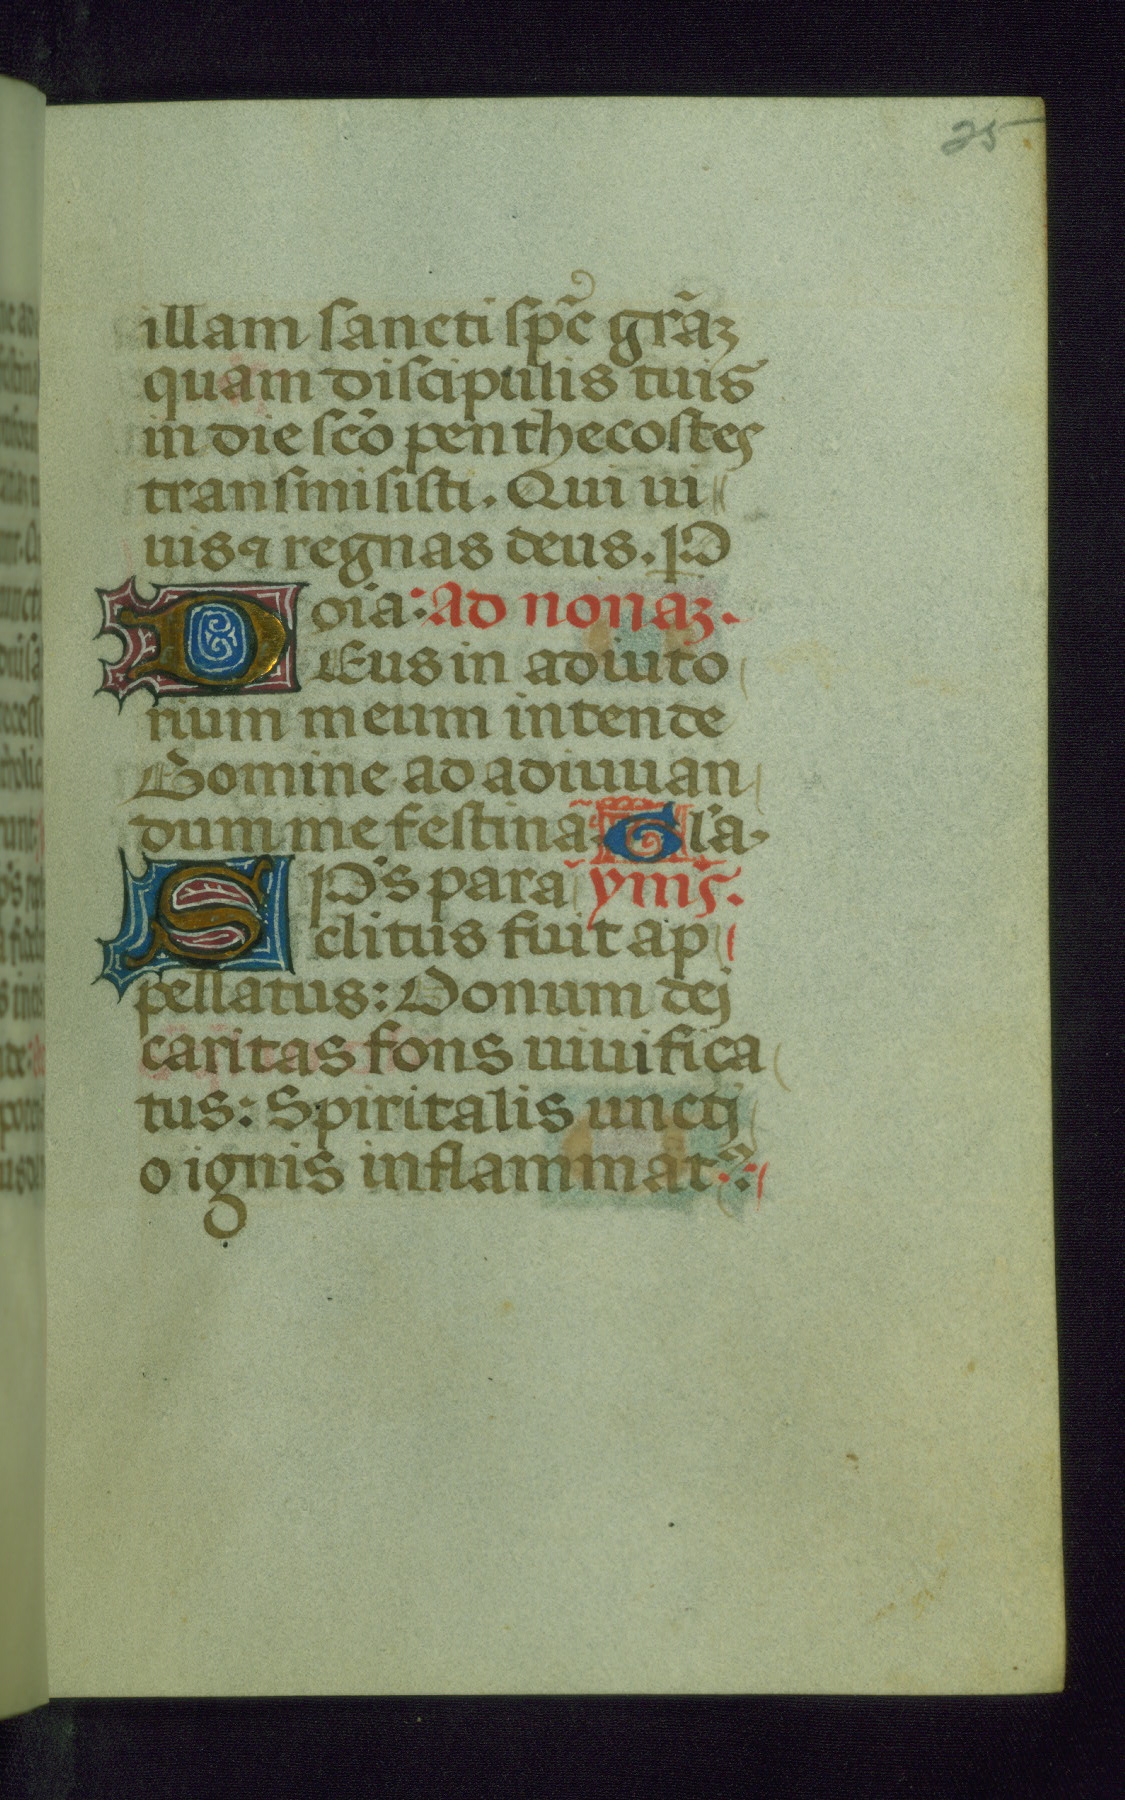 25
illam sancti sp̃c gr̃aꝫ
quam discipulis tuis
in die sc̃o penthecostes
transmisisti. Qui ui
uis ⁊ regnas deus. P
oĩa: Ad nonaꝫ.
DEus in adiuto
rium meum intende
Domine ad adiuuan
dum me festinã Gl'a.
SP's para ym̃s.
clitus fuit ap
pellatus: Donum dej
caritas fons uiuifica
tus: Spiritalis unctj
o ignis inflammat: